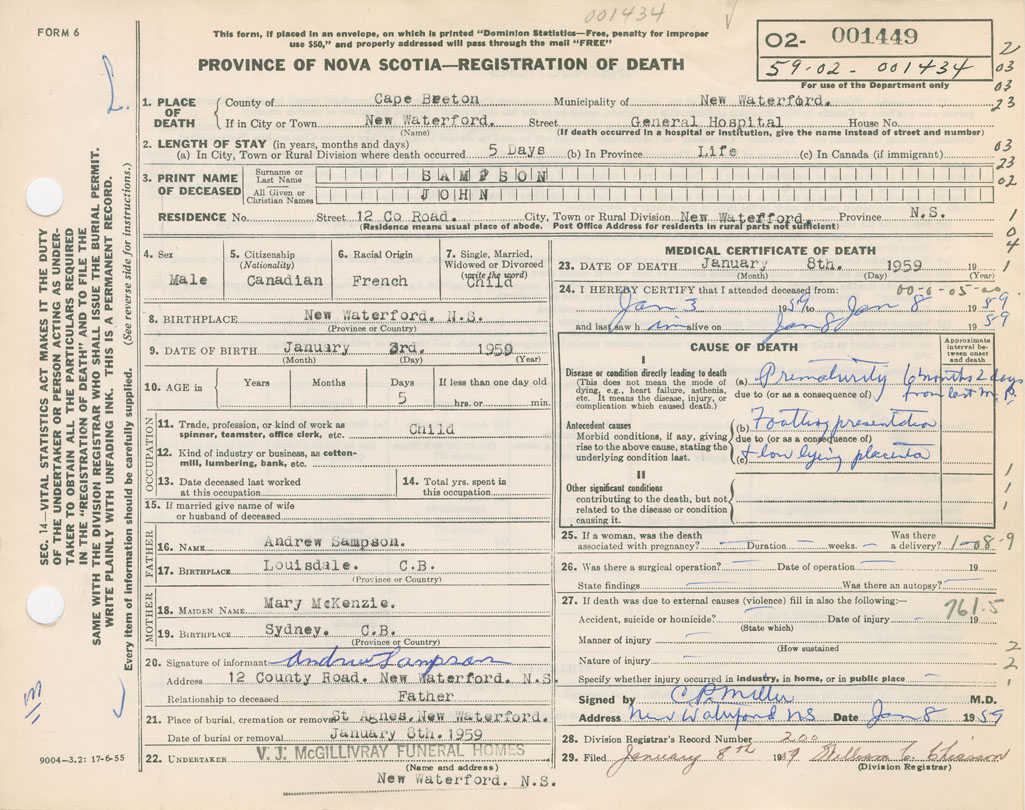 001434
FORM 6
This form, if placed in an envelope, on which is printed "Dominion Statistics—Free, penalty for improper
use $50," and properly addressed will pass through the mail "FREE"
O2- 001449
59-02- 001434
For use of the Department only
PROVINCE OF NOVA SCOTIA—REGISTRATION OF DEATH
2
03
03
23
1. PLACE OF DEATH County of Cape Breton Municipality of New Waterford.
If in City or Town New Waterford. Street General Hospital House No.
(Name) (If death occurred in a hospital or institution, give the name instead of street and number)
2. LENGTH OF STAY (in years, months and days)
(a) In City, Town or Rural Division where death occurred 5 Days (b) In Province Life (c) In Canada (if immigrant)
03
23
02
3. PRINT NAME OF DECEASED Surname or Last Name SAMPSON
All Given or Christian Names JOHN
RESIDENCE No. Street 12 Co Road. City, Town or Rural Division New Waterford. Province N.S.
(Residence means usual place of abode. Post Office Address for residents in rural parts not sufficient)
1
0
4
1
4. Sex 5. Citizenship (Nationality) 6. Racial Origin 7. Single, Married, Widowed or Divorced (write the word)
Male Canadian French Child
8. BIRTHPLACE New Waterford. N.S.
(Province or Country)
9. DATE OF BIRTH January 3rd. 1959
(Month) (Day) (Year)
10. AGE in Years Months Days If less than one day old
5 hrs. or min.
OCCUPATION
11. Trade, profession, or kind of work as spinner, teamster, office clerk, etc. Child
12. Kind of industry or business, as cotton-mill, lumbering, bank, etc.
13. Date deceased last worked at this occupation
14. Total yrs. spent in this occupation
15. If married give name of wife or husband of deceased
FATHER
16. NAME Andrew Sampson.
17. BIRTHPLACE Louisdale. C.B.
(Province or Country)
MOTHER
18. MAIDEN NAME Mary McKenzie.
19. BIRTHPLACE Sydney. C.B.
(Province or Country)
20. Signature of informant Andrew Sampson
Address 12 County Road. New Waterford. N.S.
Relationship to deceased Father
21. Place of burial, cremation or removal St Agnes. New Waterford.
Date of burial or removal January 8th. 1959
22. UNDERTAKER V. J. McGILLIVRAY FUNERAL HOMES
(Name and address)
New Waterford. N.S.
MEDICAL CERTIFICATE OF DEATH
23. DATE OF DEATH January 8th. 1959 19
(Month) (Day) (Year)
24. I HEREBY CERTIFY that I attended deceased from: 00-0-05-00
Jan 3 1959 to Jan 8 1959
and last saw him alive on Jan 8 1959
CAUSE OF DEATH
Approximate interval between onset and death
I
Disease or condition directly leading to death
(This does not mean the mode of dying, e.g., heart failure, asthenia, etc. It means the disease, injury, or complication which caused death.)
(a) Prematurity 6 months 2 days
due to (or as a consequence of) from last M.P.
Antecedent causes
Morbid conditions, if any, giving rise to the above cause, stating the underlying condition last.
(b) Footling presentation
due to (or as a consequence of)
(c) + low lying placenta
II
Other significant conditions
contributing to the death, but not related to the disease or condition causing it.
1
1
1
25. If a woman, was the death associated with pregnancy? Duration weeks. Was there a delivery? 1-08-9
26. Was there a surgical operation? Date of operation 19
State findings Was there an autopsy?
27. If death was due to external causes (violence) fill in also the following:—
761.5
Accident, suicide or homicide? Date of injury 19
(State which)
Manner of injury
(How sustained
Nature of injury
2
2
1
Specify whether injury occurred in industry, in home, or in public place
Signed by C.P. Miller M.D.
Address New Waterford NS Date Jan 8 1959
28. Division Registrar's Record Number 200
29. Filed January 8th 1959 William C. Chiasson
(Division Registrar)
SEC. 14—VITAL STATISTICS ACT MAKES IT THE DUTY
OF THE UNDERTAKER OR PERSON ACTING AS UNDER-
TAKER TO OBTAIN ALL THE PARTICULARS REQUIRED
IN THE "REGISTRATION OF DEATH" AND TO FILE THE
SAME WITH THE DIVISION REGISTRAR WHO SHALL ISSUE THE BURIAL PERMIT.
WRITE PLAINLY WITH UNFADING INK. THIS IS A PERMANENT RECORD.
Every item of information should be carefully supplied. (See reverse side for instructions.)
9004-3.2: 17-6-55